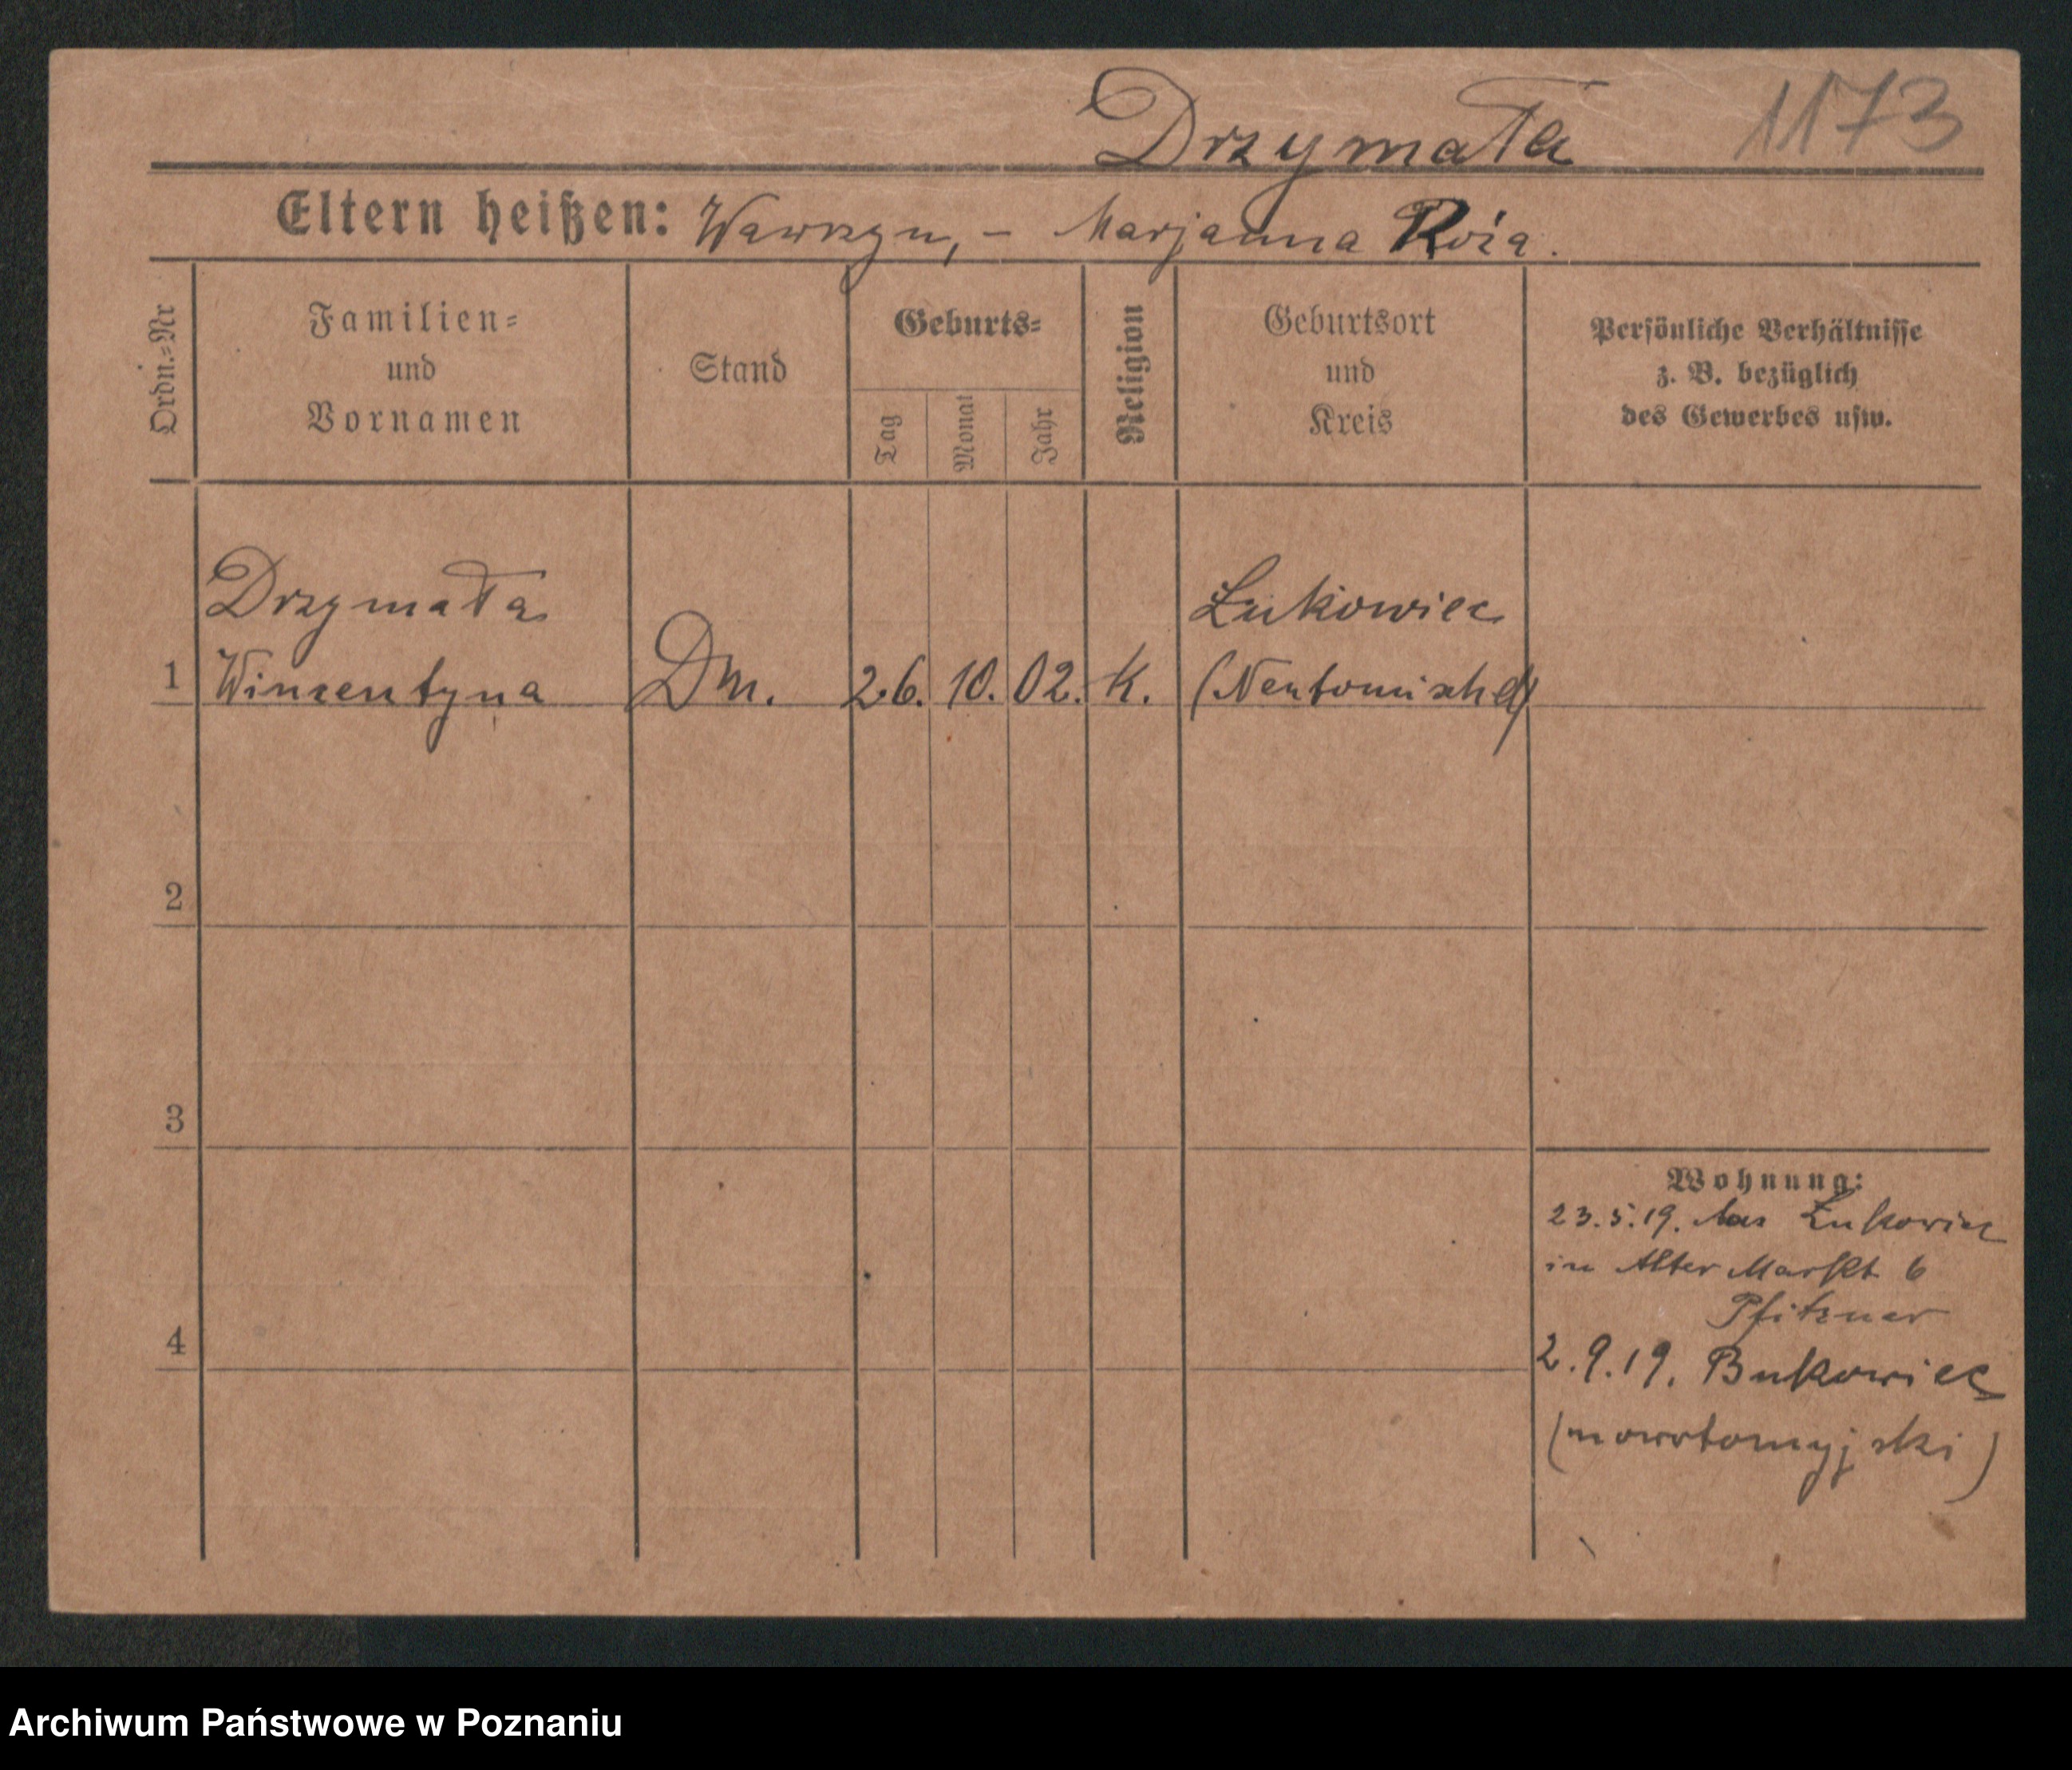 Drzymała 1173
Eltern heißen: Wawrzyn, - Marjanna Róża.
Ordn.-Nr
Familien-
und
Vornamen
Stand
Geburts-
Tag
Monat
Jahr
Religion
Geburtsort
und
Kreis
Persönliche Verhältnisse
z. B. bezüglich
des Gewerbes usw.
Drzymała Łukowiec
1 Winzentyna Dm. 26. 10. 02. K. (Neutomischel)
2
3
Wohnung:
23.5.19. Łukowiec
in Alter Markt 6
Pfitzner
4
2.9.19. Bukowiec
(nowotomyjski)
Archiwum Państwowe w Poznaniu